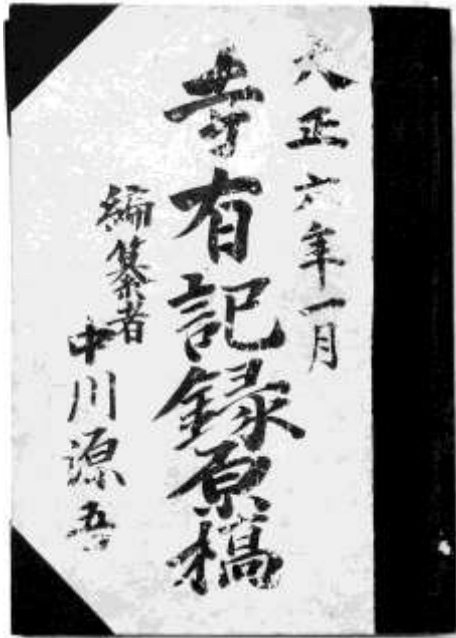 大正六年一月
寺有記録原稿
編纂者
中川源吾